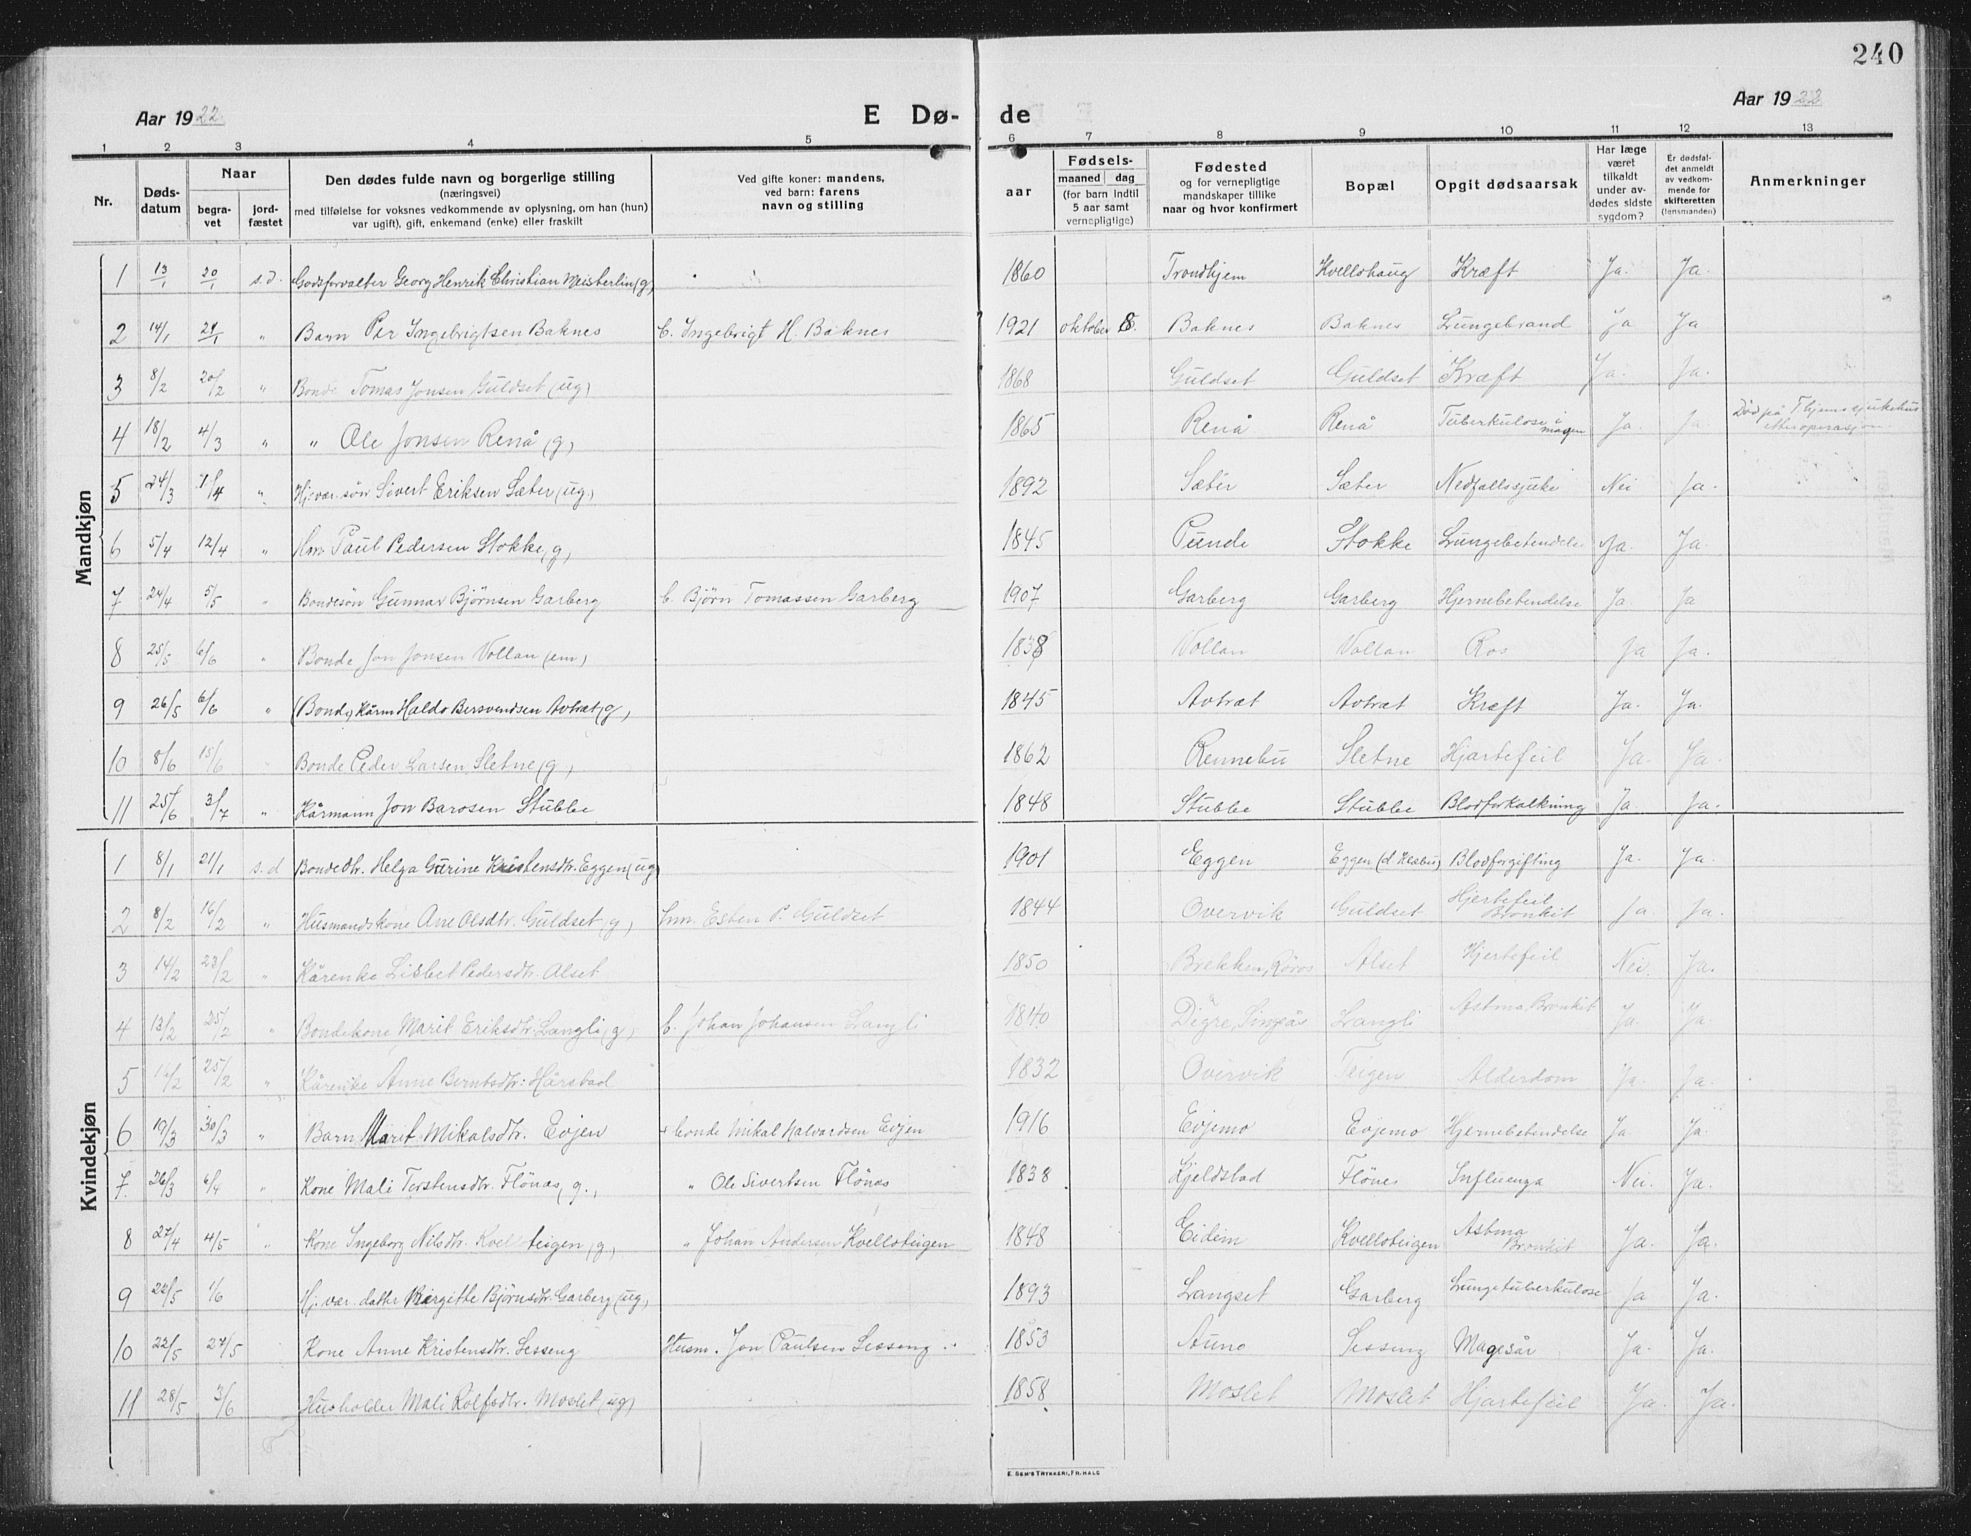 240
Aar 1922
E Dø-
de
Aar 1922
1 2 3 4 5 6 7 8 9 10 11 12 13
Nr.
Døds-
datum
Naar
begra-
vet
jord-
fæstet
Den dødes fulde navn og borgerlige stilling
(næringsvei)
med tilføielse for voksnes vedkommende av oplysning, om han (hun)
var ugift), gift, enkemand (enke) eller fraskilt
Ved gifte koner: mandens,
ved barn: farens
navn og stilling
Fødsels-
aar
maaned dag
(for barn indtil
5 aar samt
vernepligtige)
Fødested
og for vernepligtige
mandskaper tillike
naar og hvor konfirmert
Bopæl
Opgit dødsaarsak
Har læge
været
tilkaldt
under av-
dødes sidste
sygdom?
Er dødsfal-
det anmeldt
av vedkom-
mende for
skifteretten
(lensmanden)
Anmerkninger
Mandkjøn
1 13/1 20/1 s.d. Godsforvalter Georg Henrik Christian Meisterlin (g) 1860 Trondhjem Kvellohaug Kræft Ja. Ja.
2 14/1 29/1 " Barn Per Ingebrigtsen Baknes b. Ingebrigt H. Baknes 1921 oktober 8. Baknes Baknes Lungebrand Ja Ja
3 8/2 20/2 " Bonde Tomas Jonsen Guldset (ug) 1868 Guldset Guldset Kræft Ja. Ja.
4 18/2 4/3 " " Ole Jonsen Renå (g) 1865 Renå Renå Tuberkulose i magen Ja Ja Død på T.hjems sjukehus
etter operasjon
5 24/3 7/4 " Hj. vær. søn Sivert Eriksen Sæter (ug) 1892 Sæter Sæter Nedfallssjuke Nei Ja.
6 5/4 12/4 " Hm Paul Pedersen Stokke (g) 1845 Punde Stokke Lungebetendelse Ja. Ja.
7 24/4 5/5 " Bondesön Gunnar Björnsen Garberg b. Björn Tomassen Garberg 1907 Garberg Garberg Hjernebetendelse Ja Ja
8 25/5 6/6 " Bonde Jon Jonsen Vollan (em) 1838 Vollan Vollan Ros Ja Ja.
9 26/5 6/6 " (Bonde) Kårm Haldo Bersvendsen Avtrøt (g) 1845 Avtrøt Avtrøt Kræft Ja. Ja.
10 8/6 15/6 " Bonde Peder Larsen Sletne (g) 1862 Rennebu Sletne Hjartefeil Ja. Ja.
11 25/6 3/7 " Kårmann Jon Barosen Stubbe 1848 Stubbe Stubbe Blodforkalkning Ja. Ja.
Kvindekjøn
1 8/1 21/1 s.d Bondedtr. Helga Gurine Kristensdtr. Eggen (ug) 1901 Eggen Eggen (d Klæbu) Blodforgifting Ja. Ja.
2 8/2 16/2 " Husmandskone Ane Olsdtr. Guldset (g) Inn. Esten P. Guldset 1844 Overvik Guldset Hjertefeil Bronkit Ja. Ja.
3 14/2 23/2 " Kårenke Lisbet Pedersdtr. Alset 1850 Brekken, Röros Alset Hjertefeil Nei. Ja.
4 13/2 25/2 " Bondekone Marit Eriksdtr. Langli (g) b. Johan Johansen Langli 1840 Digre, Singsås Langli Astma Bronkit Ja. Ja.
5 25/2 " Kårenke Anne Berntsdtr. Hårstad 1832 Overvik Teigen Alderdom Ja. Ja.
6 19/3 30/3 " Barn Marit Mikalsdtr. Evjen bonde Mikal Halvardsen Evjen 1916 Evjemo Evjemo Hjernebetendelse Ja Ja.
7 26/3 6/4 " Kone Mali Torstensdtr. Flönas (g.) " Ole Sivertsen Flönas 1838 Kjeldstad Flönes Influenza Nei. Ja.
8 27/4 4/5 " Kone Ingeborg Nilsdtr. Kvelloteigen (g) " Johan Andersen Kvelloteigen 1848 Eidem Kvelloteigen Astma Bronkit Ja. Ja.
9 22/5 1/6 Hj. vær. datter Birgitte Björnsdtr. Garberg (ug) 1893 Langset Garberg Lungetuberkulose Ja Ja.
10 22/5 27/5 Kone Anne Kristensdtr. Sesseng Husm. Jon Paulsen Sesseng 1853 Auno Sesseng Magesår Ja. Ja.
11 28/5 3/6 Husholder Mali Rolfsdtr. Moslet (ug) 1858 Moslet Moslet Hjartefeil Ja. Ja.
E. SEM'S TRYKKERI, FR.HALD